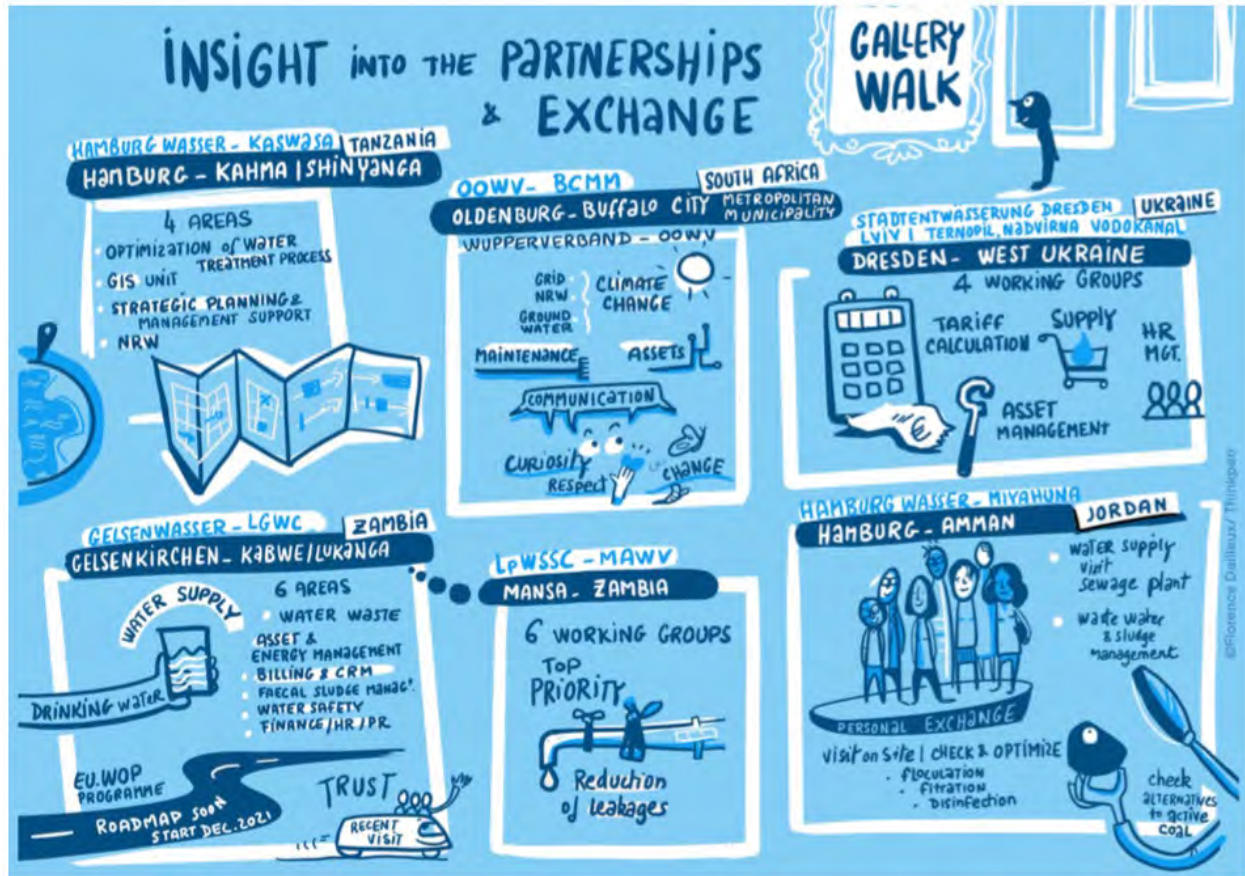 INSIGHT INTO THE PARTNERSHIPS
& EXCHANGE
GALLERY
WALK
HAMBURG WASSER - KASWASA | TANZANIA
HAMBURG - KAHMA | SHINYANGA
4 AREAS
• OPTIMIZATION of WATER
TREATMENT PROCESS
• GIS UNIT
• STRATEGIC PLANNING &
MANAGEMENT SUPPORT
• NRW
OOWV - BCMM
SOUTH AFRICA
OLDENBURG - BUFFALO CITY METROPOLITAN
MUNICIPALITY
WUPPERVERBAND - OOWV
GRID
NRW
GROUND
WATER
CLIMATE
CHANGE
MAINTENANCE
ASSETS
COMMUNICATION
CURIOSITY
RESPECT
CHANGE
STADTENTWÄSSERUNG DRESDEN | UKRAINE
LVIV | TERNOPIL, NADVIRNA VODOKANAL
DRESDEN - WEST UKRAINE
4 WORKING GROUPS
TARIFF
CALCULATION
SUPPLY
HR
MGT.
ASSET
MANAGEMENT
GELSENWASSER - LGWC
ZAMBIA
GELSENKIRCHEN - KABWE/LUKANGA
WATER SUPPLY
DRINKING WATER
6 AREAS
• WATER WASTE
• ASSET &
ENERGY MANAGEMENT
• BILLING & CRM
• FAECAL SLUDGE MANAGT.
• WATER SAFETY
• FINANCE/HR/PR
EU.WOP
PROGRAMME
ROADMAP SOON
START DEC.2021
TRUST
RECENT
VISIT
LpWSSC - MAWV
MANSA - ZAMBIA
6 WORKING GROUPS
TOP
PRIORITY
Reduction
of leakages
HAMBURG WASSER - MIYAHUNA
JORDAN
HAMBURG - AMMAN
• water supply
visit
sewage plant
• waste water
& sludge
management
PERSONAL EXCHANGE
visit on site | CHECK & OPTIMIZE
• flOCULATION
• fiTRATION
• DISINFECTION
check
ALTERNATIVES
to active
coal
©Florence Dailleux/ Thinkpen